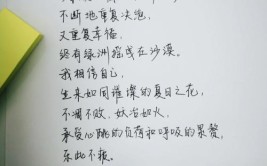 不断地重复决绝，
又重复幸福，
终有绿洲摇曳在沙漠。
我相信自己，
生来如同璀璨的夏日之花，
不凋不败，妖冶如火，
承受心跳的负荷和呼吸的累赘，
乐此不疲。